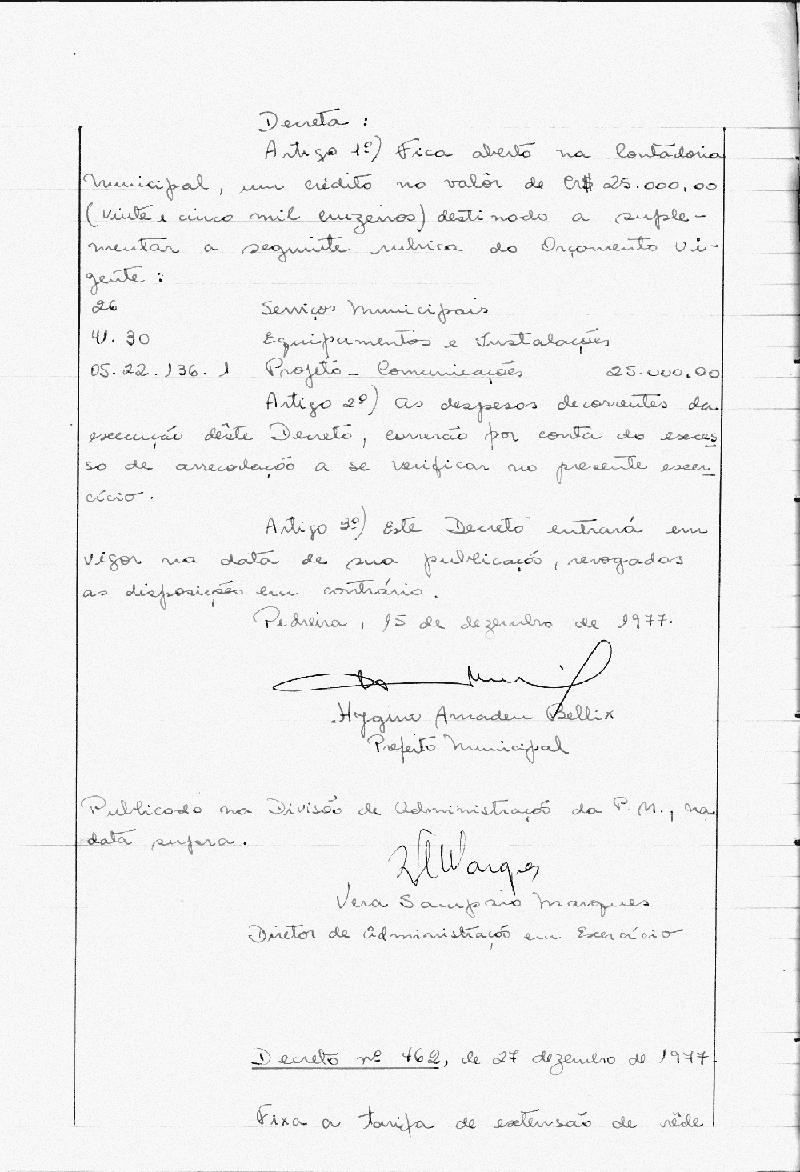 Decreta :
Artigo 1º) Fica aberto na Contadoria
Municipal, um crédito no valôr de Cr$ 25.000,00
(Vinte e cinco mil cruzeiros) destinado a suple-
mentar a seguinte rubrica do Orçamento vi-
gente :
26 Serviços Municipais
41.30 Equipamentos e Instalações
05.22.136.1 Projeto - Comunicações 25.000,00
Artigo 2º) As despesas decorrentes da
execução dêste Decreto, correrão por conta do exces
so de arrecadação a se verificar no presente exer
cício.
Artigo 3º) Este Decreto entrará em
vigor na data de sua publicação, revogadas
as disposições em contrário.
Pedreira, 15 de dezembro de 1977.
Hygino Amadeu Bellix
Prefeito Municipal
Publicado na Divisão de Administração da P. M., na
data supra.
Vera Sampaio Marques
Diretor de Administração em Exercício
Decreto nº 462, de 27 dezembro de 1977
Fixa a tarifa de extensão de rêde